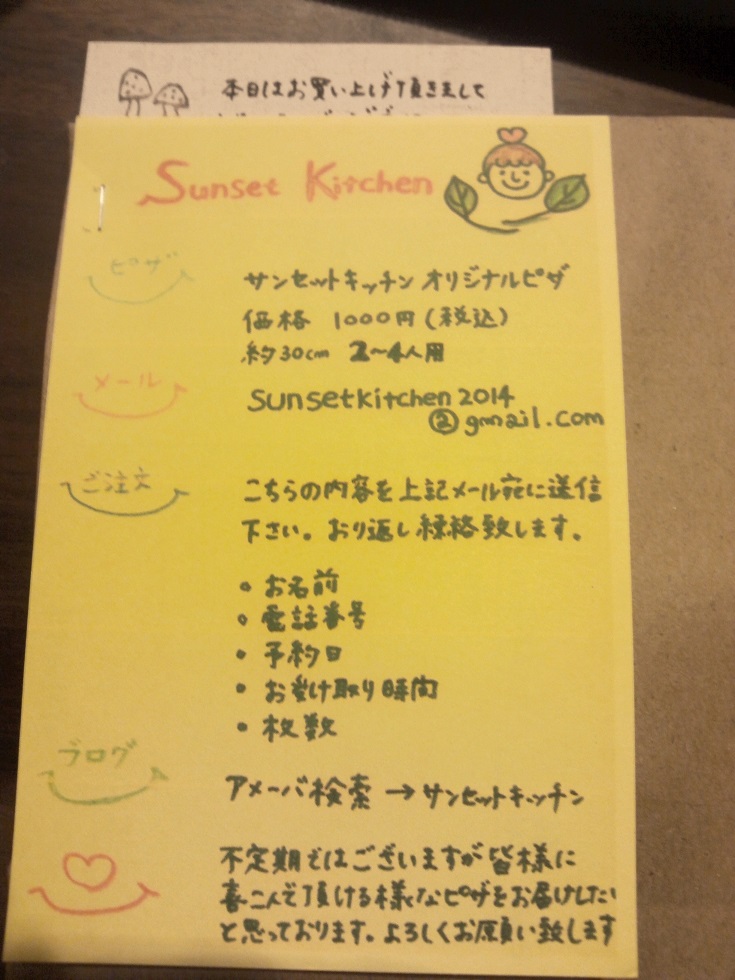 本日はお買い上げ頂きまして
Sunset Kitchen
ピザ
サンセットキッチン オリジナルピザ
価格 1000円(税込)
約30cm 2〜4人用
メール
sunsetkitchen2014
@gmail.com
ご注文
こちらの内容を上記メール宛に送信
下さい。おり返し連絡致します。
• お名前
• 電話番号
• 予約日
• お受け取り時間
• 枚数
ブログ
アメーバ検索 → サンセットキッチン
不定期ではございますが皆様に
喜こんで頂ける様なピザをお届けしたい
と思っております。よろしくお願い致します